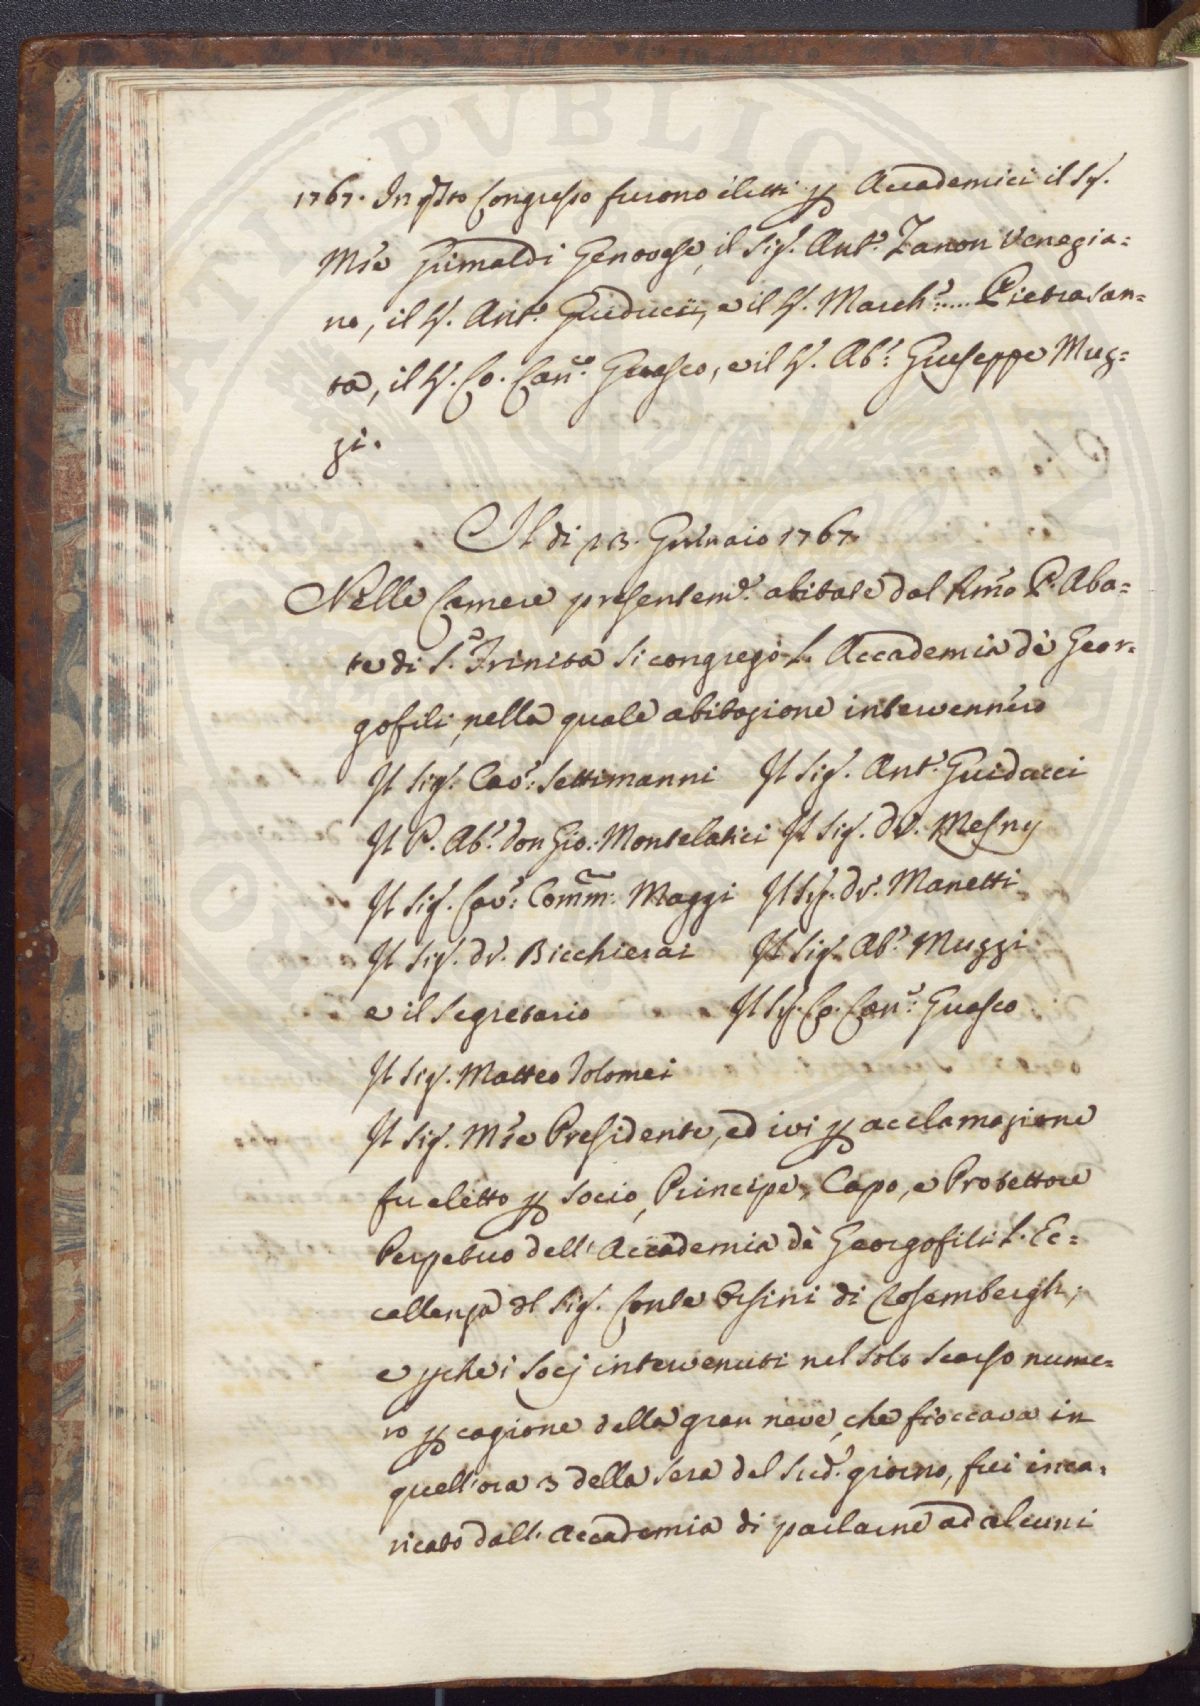 1767. In q.sto Congresso furono eletti p Accademici il Sig.
M.se Grimaldi Genovese, il Sig. Ant.o Zanon Venezia=
no, il S. Ant.o Guiducci, e il S. March.e ..... Pietrasan=
ta, il S. Co. Can.co Guasco, e il S. Ab.e Giuseppe Muz=
zi.
Il di 13. Gennaio 1767.
Nelle Camere presentem.e abitate dal R.mo P. Aba=
te di S.a Trinita si congregò L. Accademia dè Geor=
gofili, nella quale abitazione intervennero
Il Sig. Cav.e Settimanni Il Sig. Ant.o Guiducci
Il P. Ab.e Don Gio: Montelatici Il Sig. Dr. Mesny
Il Sig. Cav.e Comm: Maggi Il Sig. Dr. Manetti
Il Sig. Dr. Bicchierai Il Sig. Ab.e Muzzi
e il Segretario Il Sig. Co. Can.co Guasco
Il Sig. Matteo Tolomei
Il Sig. M.se Presidente, ed ivi p acclamazione
fu eletto p Socio, Principe, Capo, e Protettore
Perpetuo dell' Accademia dè Georgofili L. Ec=
cellenza del Sig. Conte Orsini di Rosembergh;
e p chè i Socj intervenuti nel solo scarso nume=
ro p cagione della gran neve, che fioccava in
quell'ora 3 della sera del sud.o giorno, fui inca=
ricato dall. Accademia di parlarne ad alcuni